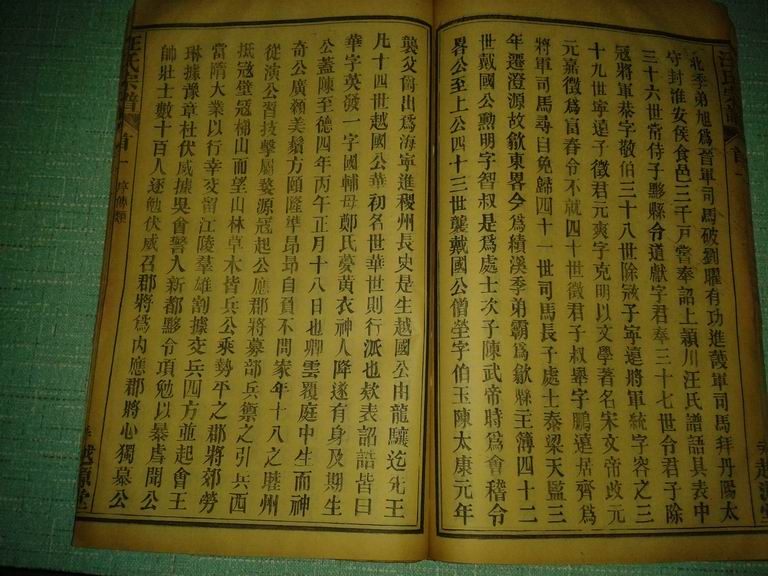 汪氏宗譜
首一
北季弟旭爲晉軍司馬破劉曜有功進護軍司馬拜丹陽太
守封淮安侯食邑三千戸嘗奉詔上潁川汪氏譜語具表中
三十六世常侍子黟縣令道獻字君奉三十七世令君子除
冦將軍恭字敬伯三十八世除冦子寧逺將軍統字容之三
十九世寧逺子徵君元爽字克明以文學著名宋文帝改元
元嘉徵爲富春令不就四十世徵君子叔舉字鵬逺居齊爲
將軍司馬尋自免歸四十一世司馬長子處士泰梁天監三
年遷澄源故歙東畧今爲績溪季弟霸爲歙縣主薄四十二
世戴國公勲明字智叔是爲處士次子陳武帝時爲會稽令
畧公至上公四十三世襲戴國公僧瑩字伯玉陳太康元年
襲父爵出爲海寧進稷州長史是生越國公由龍驤迄先王
凡十四世越國公華初名世華世則行派也欬表詔誥皆曰
華字英發一字國輔母鄭氏夣黄衣神人降遂有身及期生
公蓋陳至德四年丙午正月十八日也卿雲覆庭中生而神
奇公廣顙美鬚方頤隆準昂昂自負不問家年十八之睦州
從演公習技擊屬婺源冦起公應郡將募部兵禦之引兵西
抵冦壁冦稱山而望山林草木皆兵公乘勢平之郡將郊勞
當隋大業以行幸交留江陵羣雄割據交兵四方並起會王
琳據豫章杜伏威據吳會警入新都黟令項勉以暴虐聞公
帥壯士數十百人逐勉伏威召郡將爲内應郡將心獨慕公
汪氏宗譜
首一
序傳類
越源堂